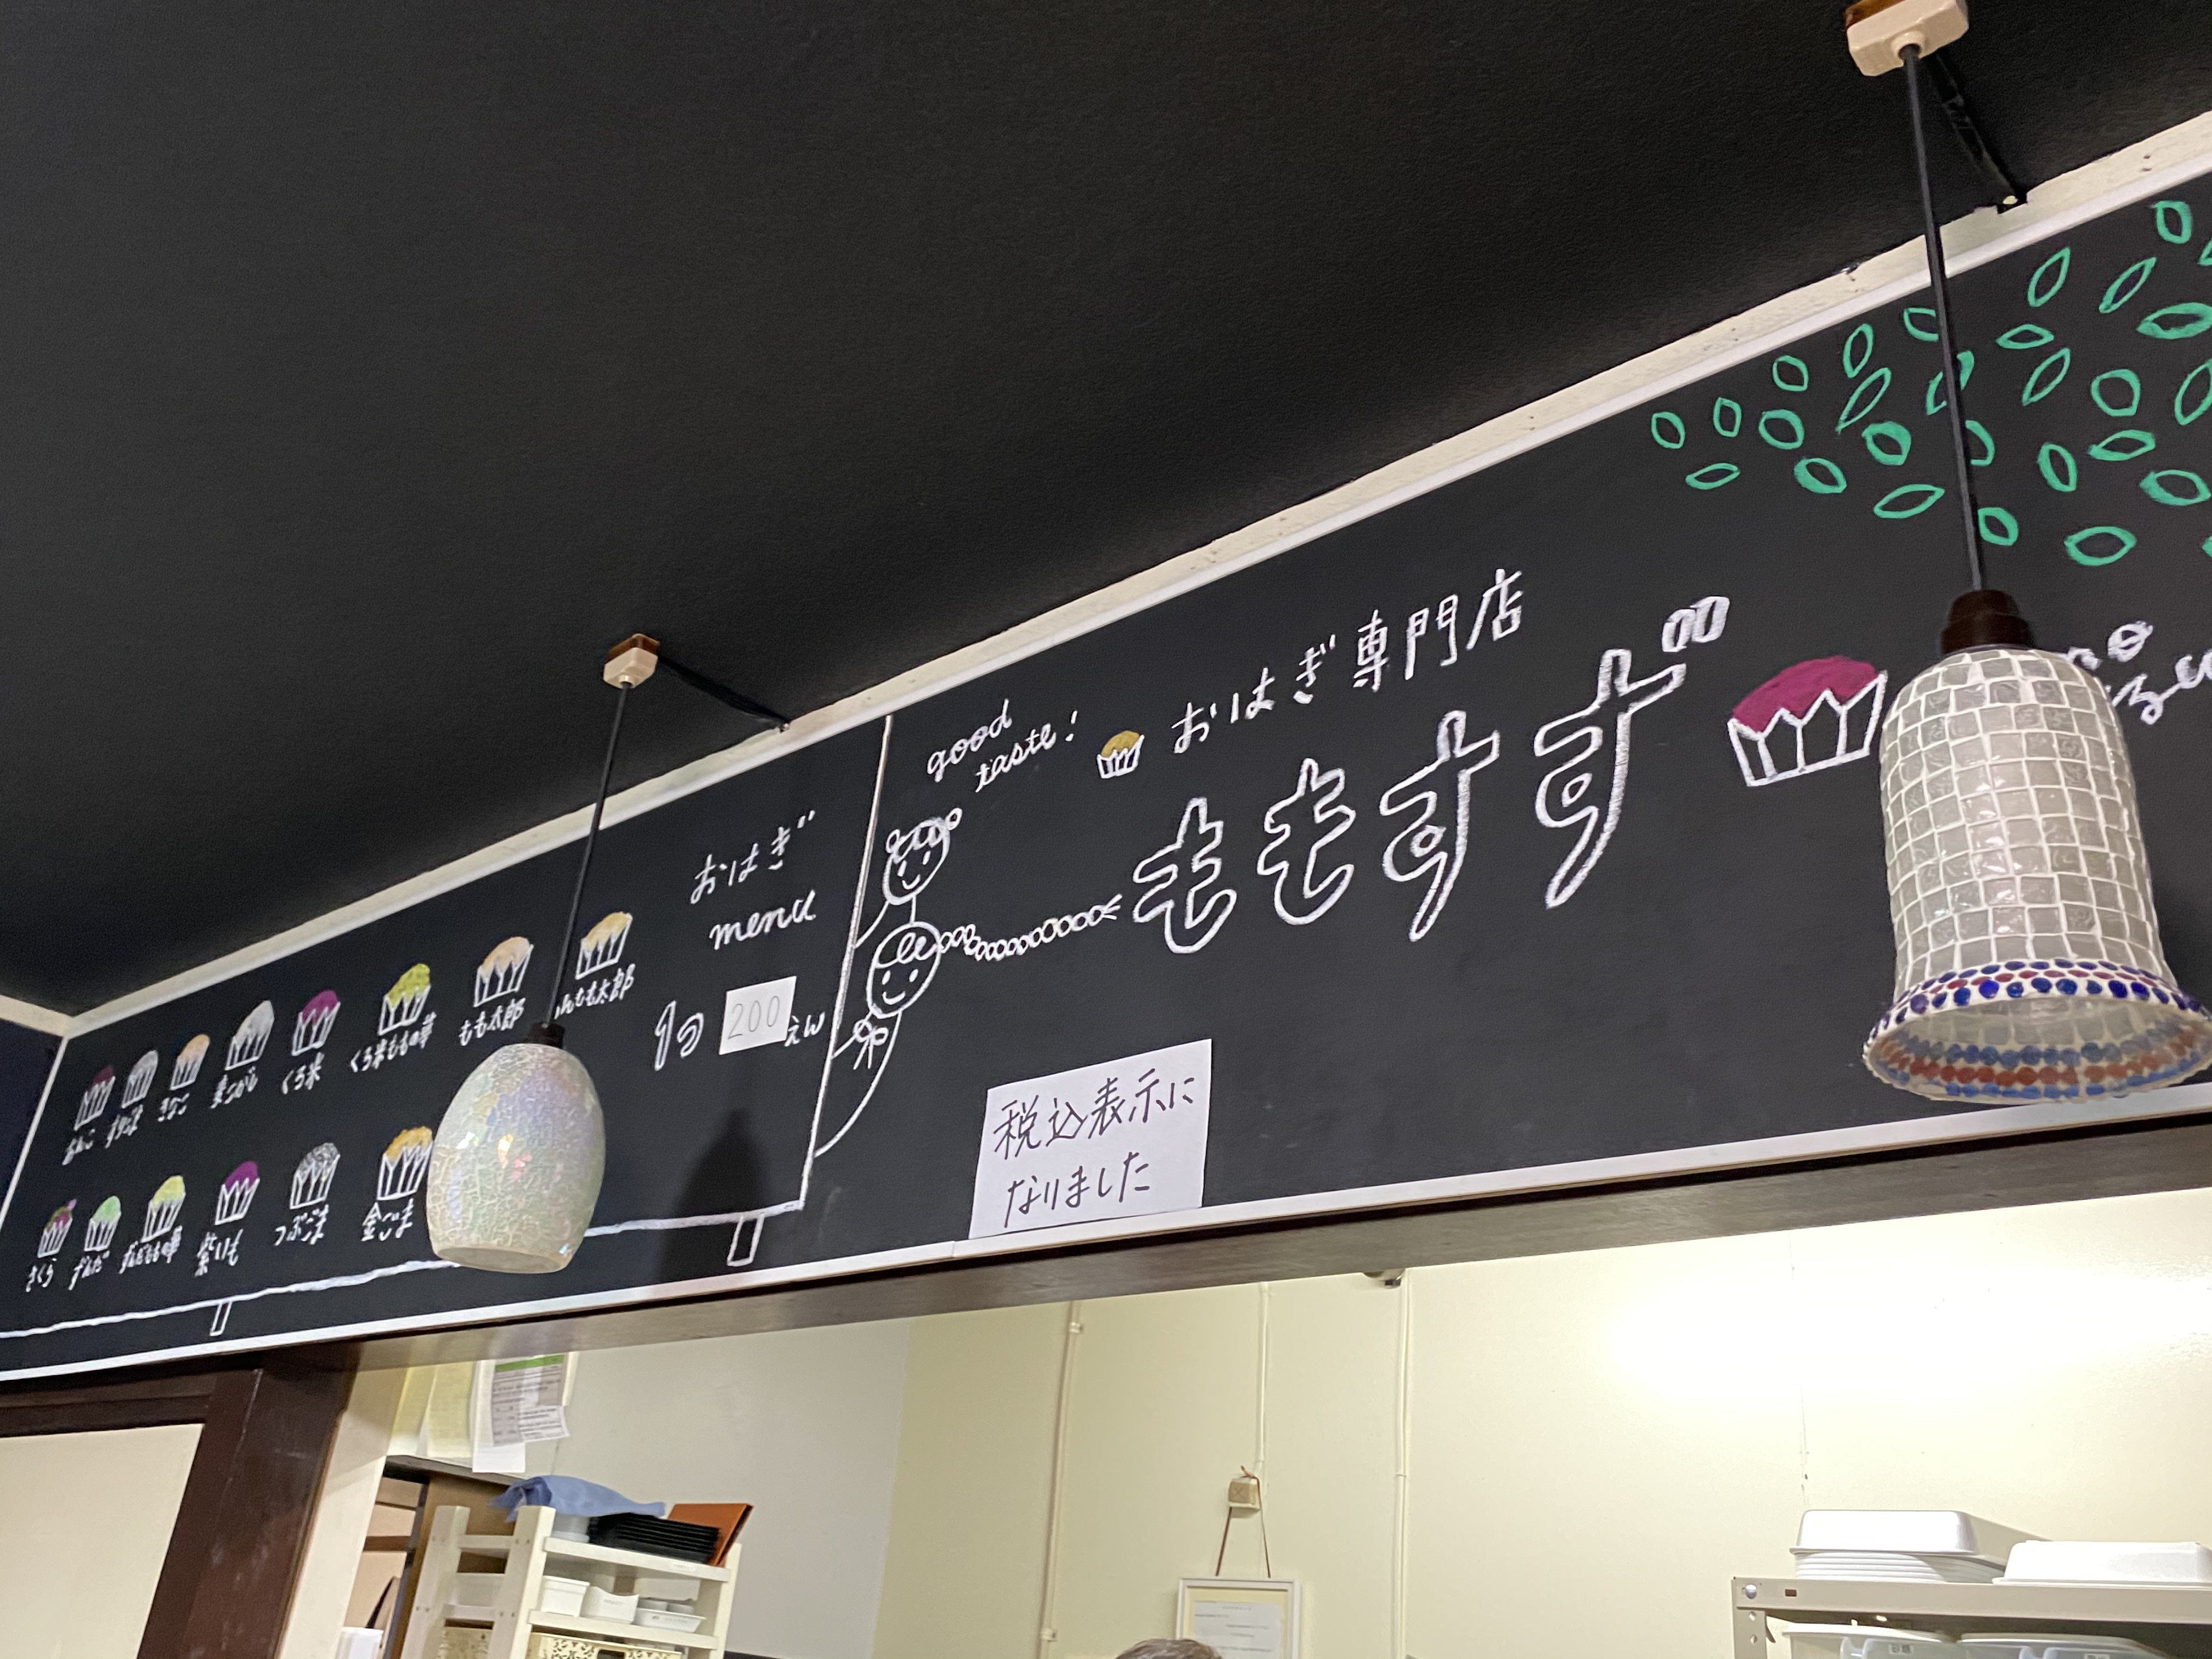 おはぎ
menu
1つ 200 えん
あんこ
きなこ
くろ米
くろ米ももの華
もも太郎
んもも太郎
さくら
ずんだ
ずんだももの華
紫いも
つぶごま
金ごま
good
taste!
おはぎ専門店
ももすず
税込表示に
なりました